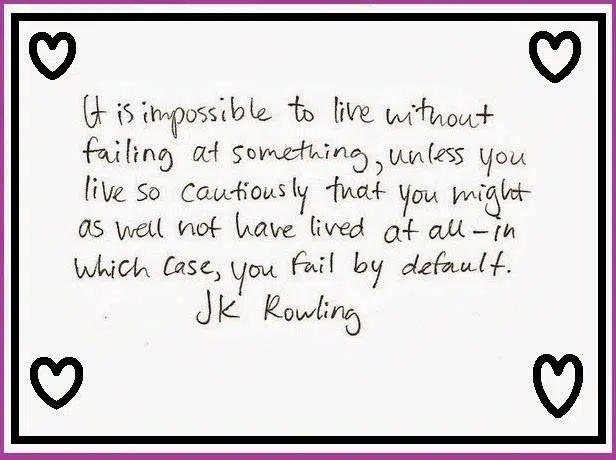 It is impossible to live without
failing at something, unless you
live so cautiously that you might
as well not have lived at all - in
which case, you fail by default.
JK Rowling